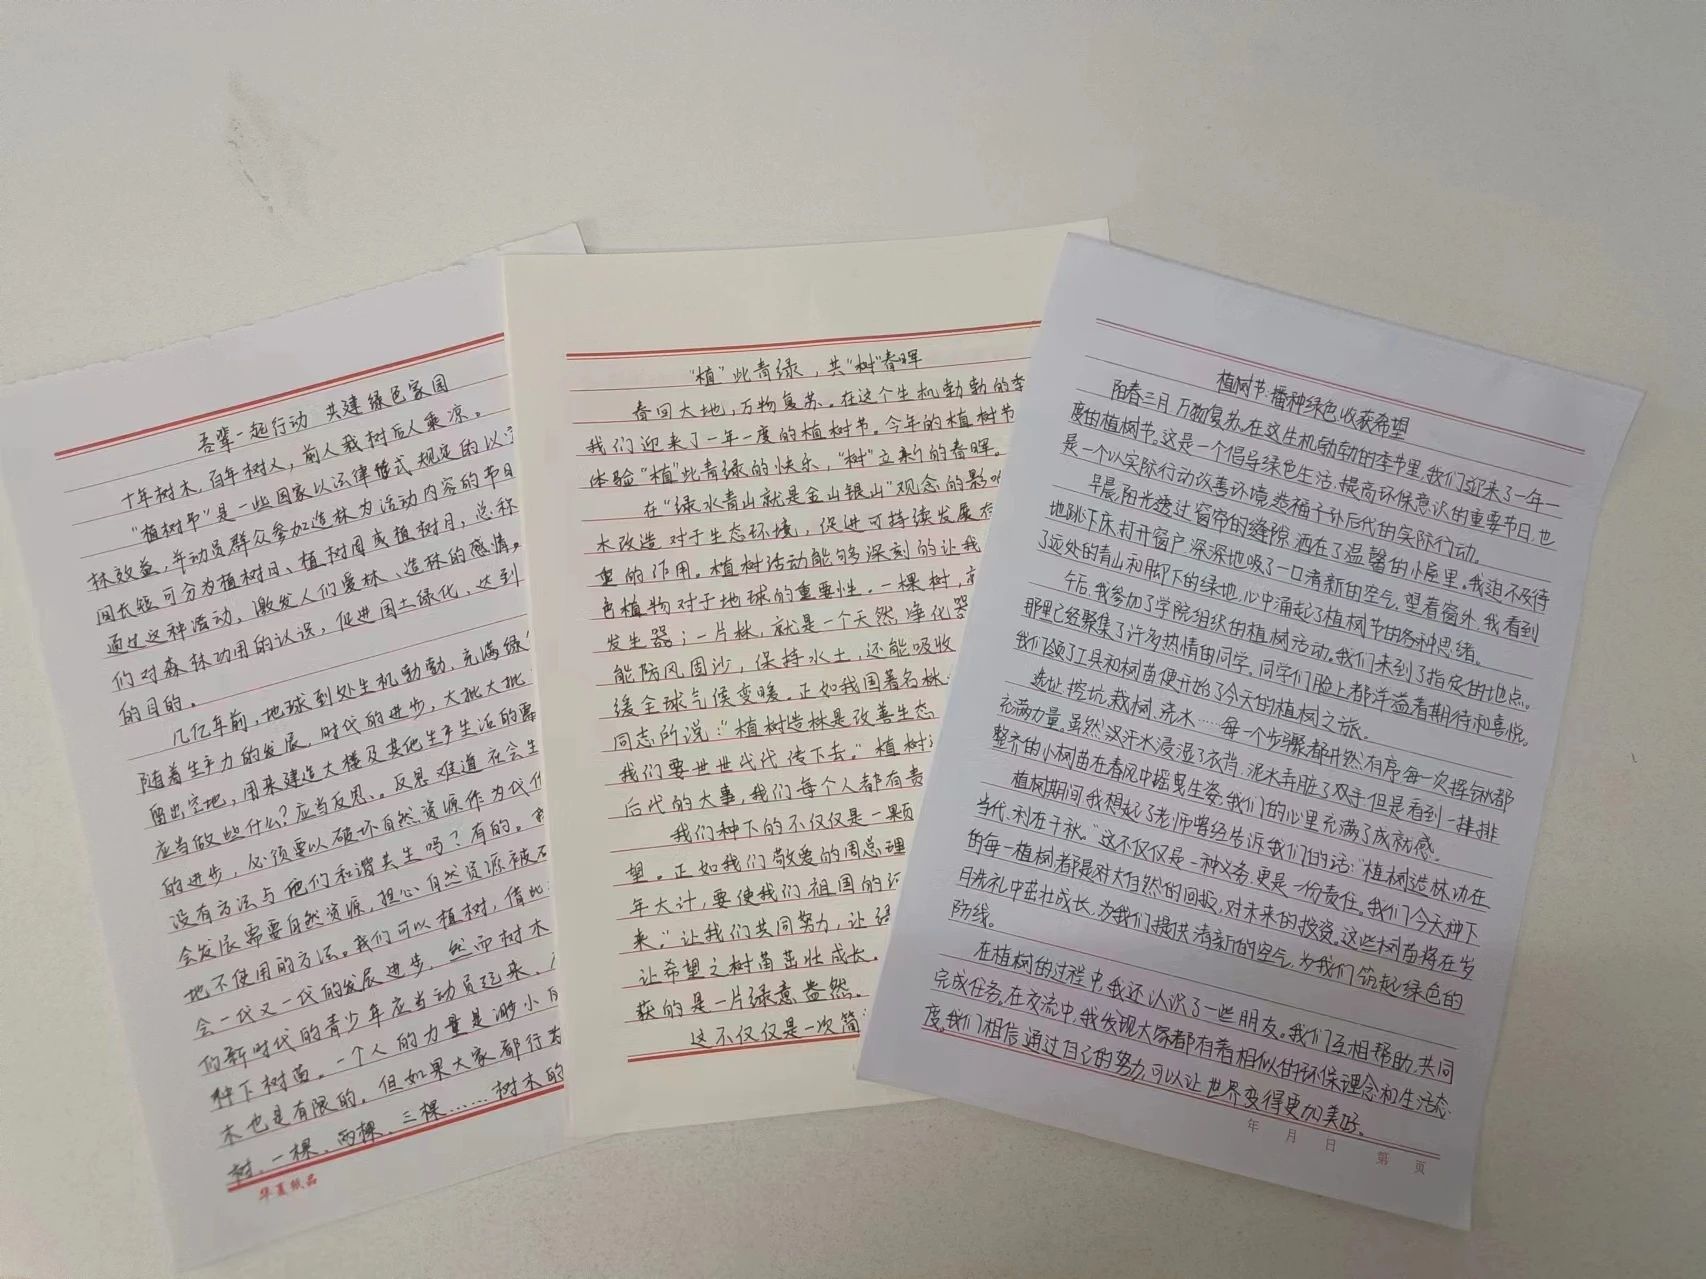 吾辈一起行动 共建绿色家园
十年树木，百年树人，前人栽树后人乘凉。
"植树节"是一些国家以法律形式规定的以
林效益，并动员群众参加造林为活动内容的节日
间长短可分为植树日、植树周或植树月，总称
通过这种活动，激发人们爱林、造林的感情。
们对森林功用的认识，促进国土绿化，达到
的目的。
几亿年前，地球到处生机勃勃，充满绿
随着生产力的发展，时代的进步，大批大批
留出空地，用来建造大楼及其他生产生活的需
应当做些什么？应当反思、。反思难道在社会生
的进步，必须要以破坏自然资源作为代价
没有方法与他们和谐共生吗？有的。
会发展需要自然资源，担心自然资源被
地不使用的方法。我们可以植树，借此
会一代又一代的发展进步，然而树木
的新时代的青少年应当动员起来，
种下树苗。一个人的力量是渺小
木也是有限的，但如果大家都行
树，一棵、两棵、三棵……树木的
华夏纸品
"植"此青绿，共"树"春晖
春回大地，万物复苏。在这个生机勃勃的季
我们迎来了一年一度的植树节。今年的植树节
体验"植"此青绿的快乐，"树"立来了的春晖。
在"绿水青山就是金山银山"观念的影响
木改造对于生态环境，促进可持续发展有
重的作用。植树活动能够深刻的让我
色植物对于地球的重要性。一棵树，
发生器；一片林，就是一个天然净化器
能防风固沙，保持水土，还能吸收
缓全球气候变暖。正如我国著名林
同志所说："植树造林是改善生态
我们要世世代代传下去。"植树
后代的大事，我们每个人都有责
我们种下的不仅仅是一颗
望。正如我们敬爱的周总理
年大计，要使我们祖国的
来。"让我们共同努力，让
让希望之树苗茁壮成长。
获的是一片绿意盎然。
这不仅仅是一次简
植树节：播种绿色，收获希望
阳春三月，万物复苏。在这生机勃勃的季节里，我们迎来了一年一
度的植树节。这是一个倡导绿色生活、提高环保意识的重要节日，也
是一个以实际行动改善环境，造福子孙后代的实际行动。
早晨，阳光透过窗帘的缝隙，洒在了温馨的小屋里。我迫不及待
地跳下床，打开窗户，深深地吸了一口清新的空气，望着窗外，我看到
了远处的青山和脚下的绿地，心中涌起了植树节的各种思绪。
午后，我参加了学院组织的植树活动。我们来到了指定的地点。
那里已经聚集了许多热情的同学。同学们脸上都洋溢着期待和喜悦。
我们领了工具和树苗，便开始了今天的植树之旅。
选址、挖坑、栽树、浇水……每一个步骤都井然有序，每一次挥锹都
充满力量。虽然汉汗水浸湿了衣背，泥水弄脏了双手，但是看到一排排
整齐的小树苗在春风中摇曳生姿，我们的心里充满了成就感。
植树期间，我想起了老师曾经告诉我们的话："植树造林，功在
当代，利在千秋。"这不仅仅是一种义务，更是一份责任。我们今天种下
的每一植树都是对大自然的回报，对未来的投资。这些树苗将在岁
月洗礼中茁壮成长，为我们提供清新的空气，为我们筑起绿色的
防线。
在植树的过程中，我还认识了一些朋友。我们互相帮助，共同
完成任务。在交流中，我发现大家都有着相似的环保理念和生活态
度。我们相信，通过自己的努力，可以让世界变得更加美好。
年 月 日 第 页